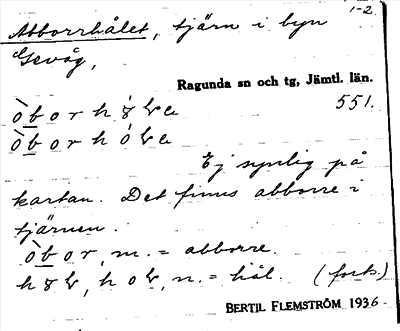 1-2.
Abborrhålet, tjärn i byn
Gevåg,
Ragunda sn och tg, Jämtl. län.
551.
Ej synlig på
kartan. Det finns abborre i
tjärnen.
òbor, m. = abborre.
n. = hål. (forts.)
BERTIL FLEMSTRÖM 1936